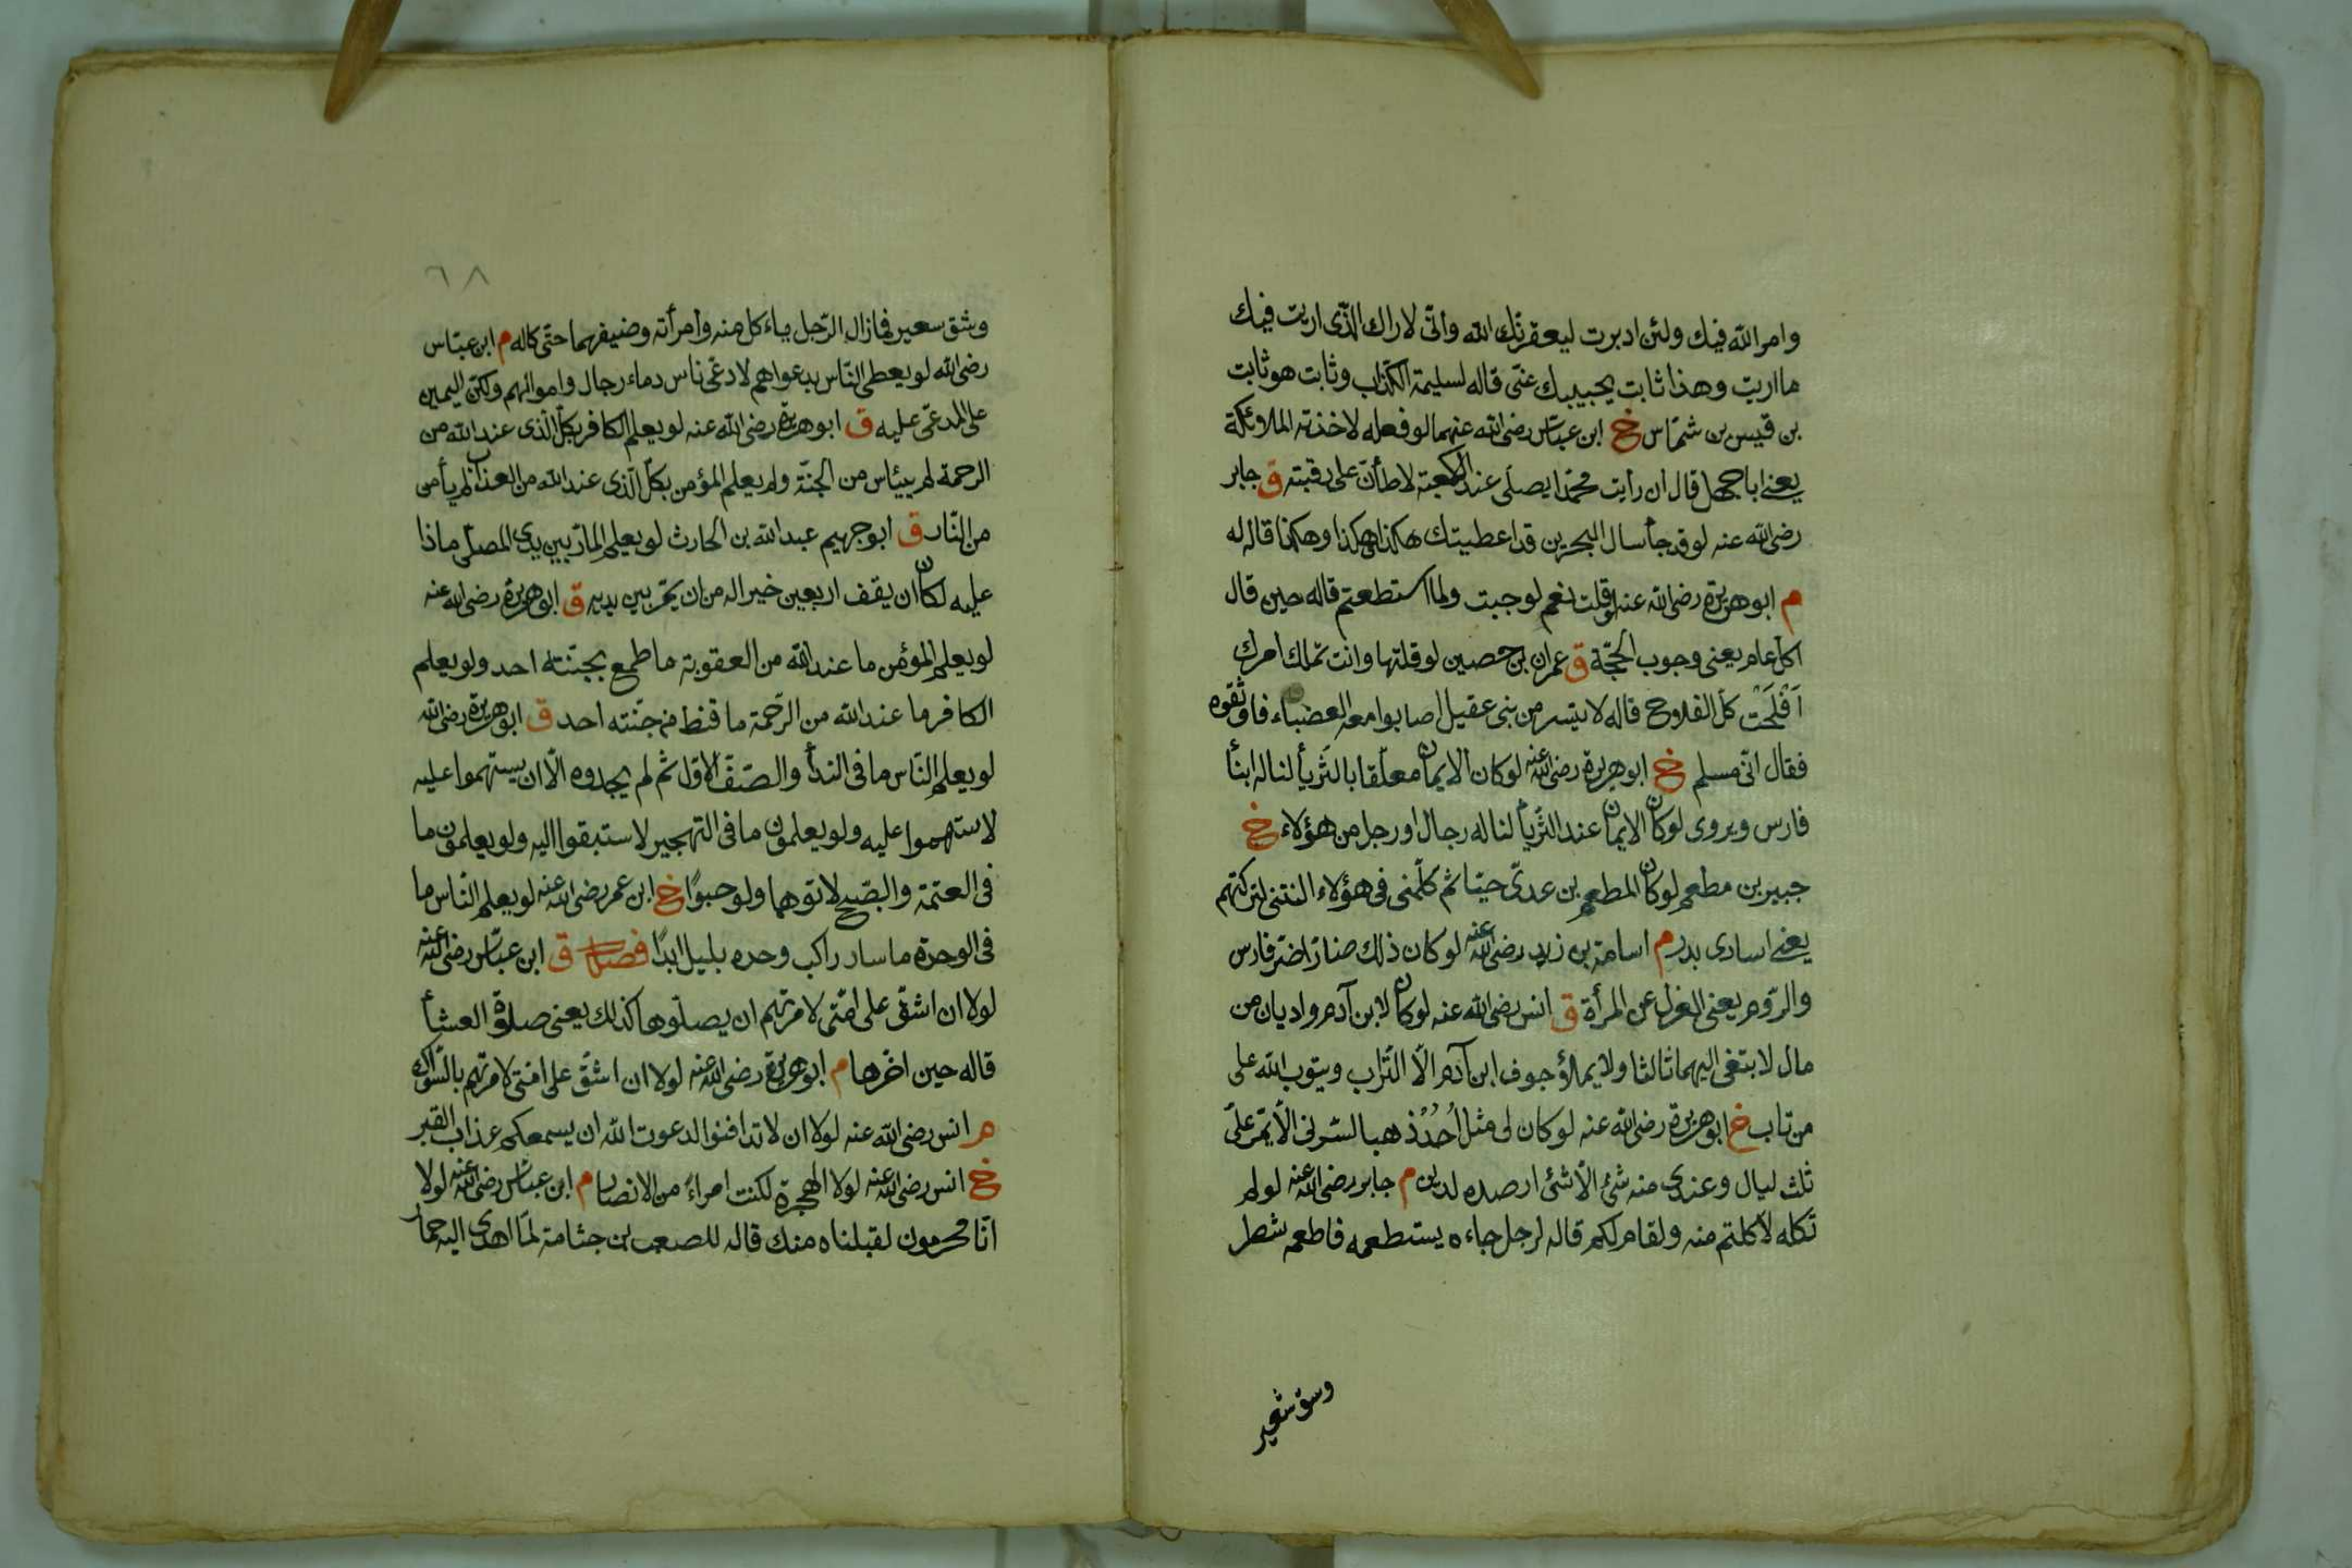 وامر الله فيك ولئن ادبرت ليعقرنّك الله وانّى لاراك الذّى اريت فيك
ما اريت وهذا ثابت يجيبك عنّى قاله لسليمة الكذّاب وثابت هو ثابت
بن قيس بن شمّاس خ ابن عبّاس رضى الله عنهما لو فعله لاخذته الملائكة
يعنى ابا جهل قال ان رأيت محمّدا يصلّى عند الكعبة لاطأنّ على رقبته ق جابر
رضى الله عنه لو قد جأ مال البحرين قد اعطيتك هكذا هكذا وهكذا قاله له
م ابو هريرة رضى الله عنه لو قلت نعم لوجبت ولما استطعتم قاله حين قال
اكلّ عام يعنى وجوب الحجّة ق عمران بن حصين لو قلتها وانت تملك امرك
اَفْلَحْتَ كلّ الفلاح قاله لاسير من بنى عقيل اصابوا معه العضباء فاوثقوه
فقال انّى مسلم خ ابو هريرة رضى الله عنه لو كان الايمان معلّقا بالثّريأ لناله ابنأ
فارس ويروى لو كان الايمان عند الثّريأ لناله رجال او رجل من هؤلاء خ
جبير بن مطعم لو كان المطعم بن عدىّ حيّا ثم كلّمنى فى هؤلاء النتنى لتركتهم
يعنى اسارى بدر م اسامة بن زيد رضى الله عنه لو كان ذلك ضارّا ضرّ فارس
والرّوم يعنى الغزل عن المرأة ق انس رضى الله عنه لو كان لابن آدم واديان من
مال لابتغى اليهما ثالثا ولا يملاؤ جوف ابن آدم الّا التّراب ويتوب الله على
من تاب خ ابو هريرة رضى الله عنه لو كان لى مثل اُحُدٍ ذهبا لسّرنى الّا يمّر علىّ
ثلث ليال وعندى منه شئ الّا شئ ارصده لدين م جابر رضى الله عنه لو لم
تكله لاكلتم منه ولقام لكم قاله لرجل جاءه يستطعمه فاطعمه شطر
وسق شعير
٦٨
وشق سعير فمازال الرّجل ياءكل منه وامرأته وضيفهما حتّى كاله م ابن عبّاس
رضى الله لو يعطى النّاس بدعواهم لادعّى ناس دماء رجال واموالهم ولكنّ اليمين
على المدعّى عليه ق ابو هريرة رضى الله عنه لو يعلم الكافر بكلّ الّذى عند الله من
الرحمة لم ييئاس من الجنّة ولو يعلم المؤمن بكلّ الّذى عند الله من العذاب لم يأمن
من النّار ق ابو جهيم عبد الله بن الحارث لو يعلم المارّ بين يدى المصلّى ماذا
عليه لكان ان يقف اربعين خيرا له من ان يمّر بين يديه ق ابو هريرة رضى الله عنه
لو يعلم المؤمن ما عند الله من العقوبة ما طمع بجنّته احد ولو يعلم
الكافر ما عند الله من الرّحمة ما قنط من جنّته احد ق ابو هريرة رضى الله
لو يعلم النّاس ما فى الندأ والصّفّ الاوّل ثم لم يجدوه الّا ان يستهموا عليه
لاستهموا عليه ولو يعلمون ما فى التهجير لاستبقوا اليه ولو يعلمون ما
فى العتمة والصّبح لاتوهما ولو حبوًا خ ابن عمر رضى الله عنه لو يعلم النّاس ما
فى الوحدة ما سار راكب وحده بليل ابدًا فصل ق ابن عبّاس رضى الله عنه
لولا ان اشقّ على امّتى لامرتهم ان يصلّوها كذلك يعنى صلوة العشأ
قاله حين اخّرها م ابو هريرة رضى الله عنه لولا ان اشقّ على امّتى لامرتهم بالسّواك
م انس رضى الله عنه لولا ان لا تدافنوا لدعوت الله ان يسمعكم عذاب القبر
خ انس رضى الله عنه لولا الهجرة لكنت امراءً من الانصار م ابن عبّاس رضى الله عنه لولا
انّا محرمون لقبلناه منك قاله للصعب بن جثامة لمّا اهدى اليه حمار